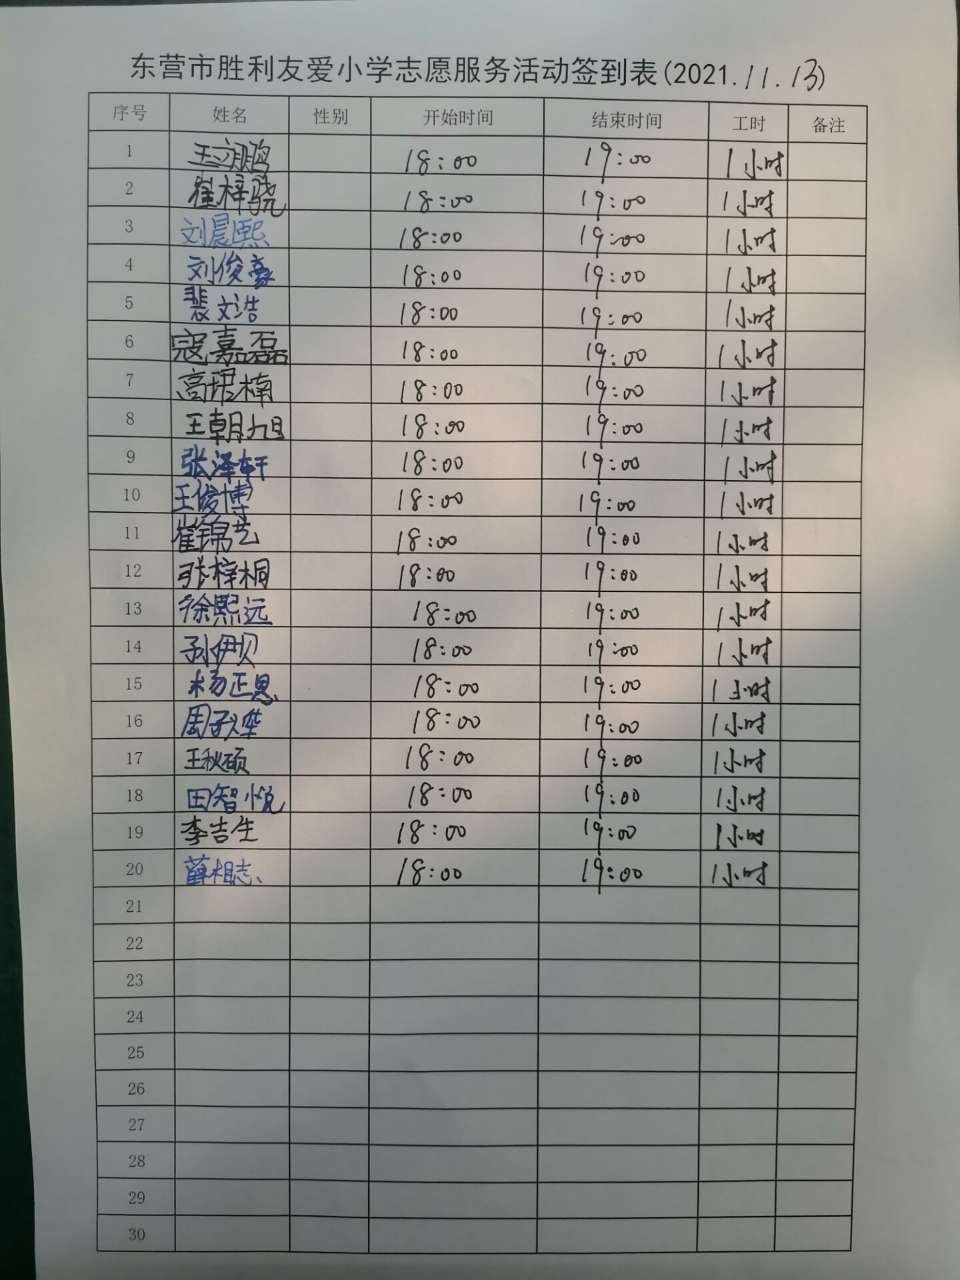 东营市胜利友爱小学志愿服务活动签到表(2021.11.13)
序号 姓名 性别 开始时间 结束时间 工时 备注
1 王翊鸣 18:00 19:00 1小时
2 崔梓骁 18:00 19:00 1小时
3 刘晨熙 18:00 19:00 1小时
4 刘俊豪 18:00 19:00 1小时
5 裴文浩 18:00 19:00 1小时
6 寇嘉磊 18:00 19:00 1小时
7 高珺楠 18:00 19:00 1小时
8 王朝旭 18:00 19:00 1小时
9 张泽轩 18:00 19:00 1小时
10 王俊博 18:00 19:00 1小时
11 崔锦艺 18:00 19:00 1小时
12 张梓桐 18:00 19:00 1小时
13 徐熙远 18:00 19:00 1小时
14 孙伊贝 18:00 19:00 1小时
15 杨正恩 18:00 19:00 1小时
16 周子烨 18:00 19:00 1小时
17 王秋硕 18:00 19:00 1小时
18 田智悦 18:00 19:00 1小时
19 李吉生 18:00 19:00 1小时
20 薛相志 18:00 19:00 1小时
21
22
23
24
25
26
27
28
29
30